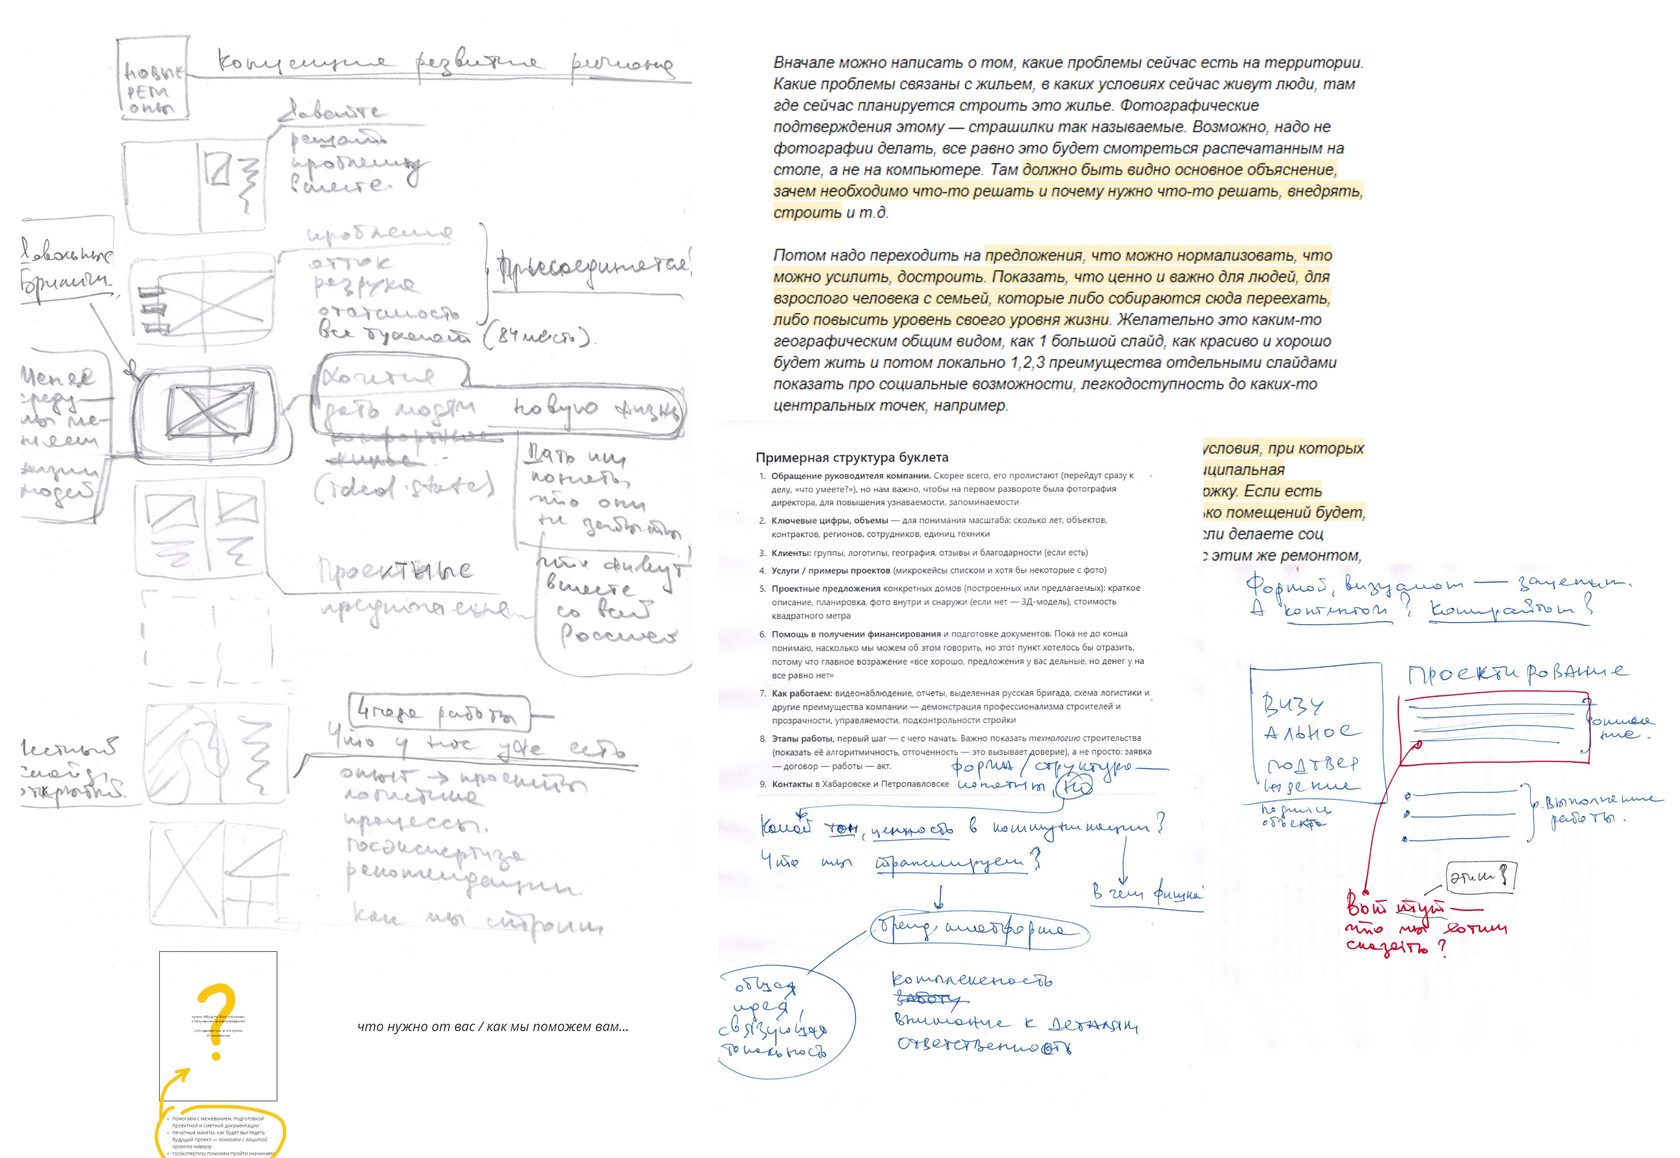 новые
реги
оны
Концепция развития региона
давайте
решать
проблему
вместе.
проблема
отток
разруха
отсталость
Довольные
Хотите
дать людям новую жизнь
комфортное
жилье
(ideal state)
Дать им
понять,
что они
не забыты
живут
вместе
со всей
Россией
Проектные
предложения
Что у нас уже есть
опыт → проекты
логистика
процессы.
госэкспертиза
рекомендации
Как мы строим
?
что нужно от вас / как мы поможем вам...
помогаем с межеванием, подготовкой
проектной и сметной документации
печатные макеты, как будет выглядеть
будущий проект — помогаем с защитой
проекта наверху
госэкспертизу поможем пройти (начинаем
Вначале можно написать о том, какие проблемы сейчас есть на территории.
Какие проблемы связаны с жильем, в каких условиях сейчас живут люди, там
где сейчас планируется строить это жилье. Фотографические
подтверждения этому — страшилки так называемые. Возможно, надо не
фотографии делать, все равно это будет смотреться распечатанным на
столе, а не на компьютере. Там должно быть видно основное объяснение,
зачем необходимо что-то решать и почему нужно что-то решать, внедрять,
строить и т.д.
Потом надо переходить на предложения, что можно нормализовать, что
можно усилить, достроить. Показать, что ценно и важно для людей, для
взрослого человека с семьей, которые либо собираются сюда переехать,
либо повысить уровень своего уровня жизни. Желательно это каким-то
географическим общим видом, как 1 большой слайд, как красиво и хорошо
будет жить и потом локально 1,2,3 преимущества отдельными слайдами
показать про социальные возможности, легкодоступность до каких-то
центральных точек, например.
условия, при которых
иципальная
ржку. Если есть
ько помещений будет,
сли делаете соц
с этим же ремонтом,
Примерная структура буклета
1. Обращение руководителя компании. Скорее всего, его пролистают (перейдут сразу к
делу, «что умеете?»), но нам важно, чтобы на первом развороте была фотография
директора, для повышения узнаваемости, запоминаемости
2. Ключевые цифры, объемы — для понимания масштаба: сколько лет, объектов,
контрактов, регионов, сотрудников, единиц техники
3. Клиенты: группы, логотипы, география, отзывы и благодарности (если есть)
4. Услуги / примеры проектов (микрокейсы списком и хотя бы некоторые с фото)
5. Проектные предложения конкретных домов (построенных или предлагаемых): краткое
описание, планировка, фото внутри и снаружи (если нет — 3Д-модель), стоимость
квадратного метра
6. Помощь в получении финансирования и подготовке документов. Пока не до конца
понимаю, насколько мы можем об этом говорить, но этот пункт хотелось бы отразить,
потому что главное возражение «все хорошо, предложения у вас дельные, но денег у нас
все равно нет»
7. Как работаем: видеонаблюдение, отчеты, выделенная русская бригада, схема логистики и
другие преимущества компании — демонстрация профессионализма строителей и
прозрачности, управляемости, подконтрольности стройки
8. Этапы работы, первый шаг — с чего начать. Важно показать технологию строительства
(показать её алгоритмичность, отточенность — это вызывает доверие), а не просто: заявка
— договор — работы — акт.
9. Контакты в Хабаровске и Петропавловске
форма / структура —
понятны, но
Какой тон, ценность в коммуникации?
Что мы транслируем?
В чем фишка
бренд-платформа
общая
идея,
связующая
тональность
комплексность
заботу
внимание к деталям
ответственность
Формой, визуалом — зацепит.
А контентом? Копирайтом?
визу
альное
подтвер
ждение
подписи
объекта
Проектирование
описание.
выполненные
работы.
этим?
Вот тут —
что мы хотим
сказать?